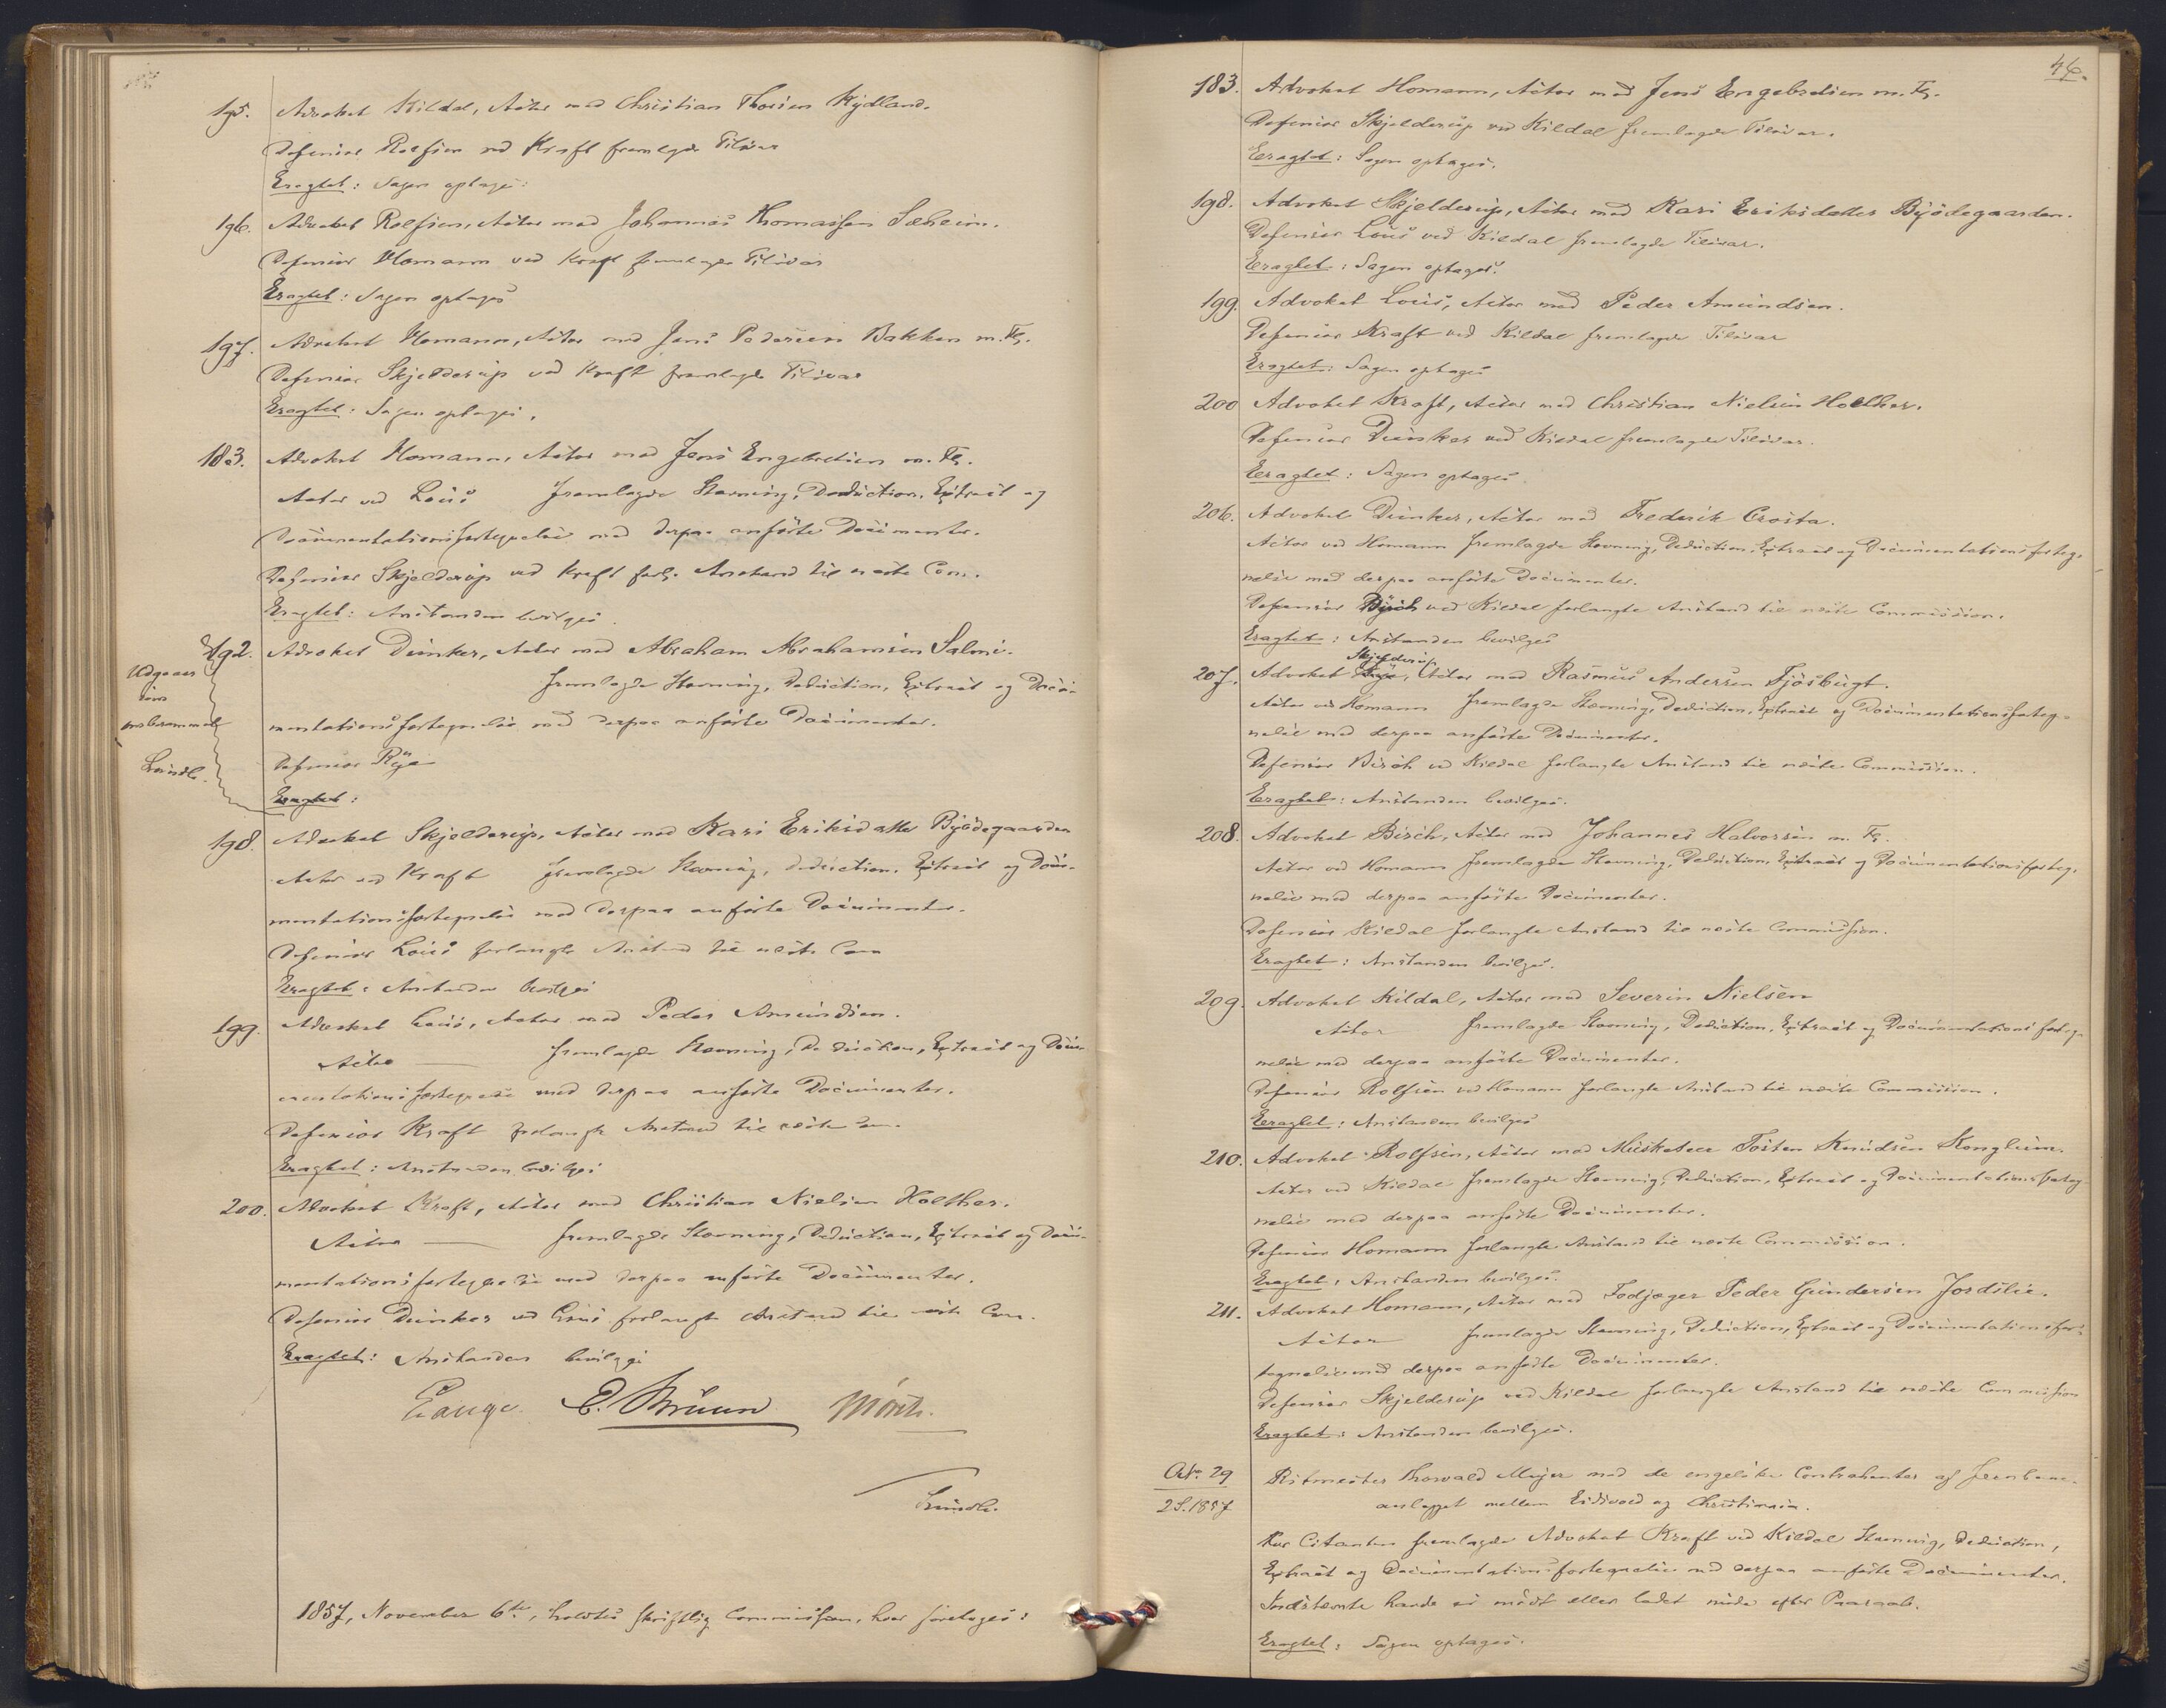 195. Advokat Kildal, Actor mod Christian Thorsen Kydland.
Defensor Rolfsen ved Kraft fremlagde Tilsvar
Eragtet: Sagen optages.
196. Advokat Rolfsen, Actor mod Johannes Thomassen Sæheim.
Defensor Homann ved Kraft fremlagde Tilsvar
Eragtet: Sagen optages
197. Advokat Homann, Actor mod Jens Pedersen Bakken m. Fl.
Defensor Skjelderup ved Kraft fremlagde Tilsvar
Eragtet: Sagen optages.
183. Advokat Homann, Actor mod Jens Engebretsen m. Fl.
Actor ved Lous fremlagde Stævning, Deduction, Extract og
Documentationsfortegnelse med derpaa anførte Documenter.
Defensor Skjelderup ved Kraft forl. Anstand til næste Com.
Eragtet: Anstanden bevilges.
192. Advokat Dunker, Actor mod Abraham Abrahamsen Salmi.
Udgaaer
som
uberammet
Lundh.
fremlagde Stævning, Deduction, Extract og Docu-
mentationsfortegnelse med derpaa anførte Documenter.
Defensor Rye
Eragtet:
198. Advokat Skjelderup, Actor mod Kari Eriksdatter Byödegaarden
Actor ved Kraft fremlagde Stævning, Deduction, Extract og Docu-
mentationsfortegnelse med derpaa anførte Documenter.
Defensor Lous forlangte Anstand til næste Com
Eragtet: Anstanden bevilges
199. Advokat Lous, Actor mod Peder Amundsen.
Actor fremlagde Stævning, Deduction, Extract og Docu-
mentationsfortegnelse med derpaa anførte Documenter.
Defensor Kraft forlangte Anstand til næste Com.
Eragtet: Anstanden bevilges
200. Advokat Kraft, Actor mod Christian Nielsen Holther.
Actor fremlagde Stævning, Deduction, Extract og Docu-
mentationsfortegnelse med derpaa anførte Documenter.
Defensor Dunker ved Lous forlangte Anstand til næste Com.
Eragtet: Anstanden bevilges
Lange. E. Bruun Mörch.
Lundh.
1857, November 6te, holdtes skriftlig Commission, hvor foretoges:
46.
183. Advokat Homann, Actor mod Jens Engebretsen m. Fl.
Defensor Skjelderup ved Kildal fremlagde Tilsvar.
Eragtet: Sagen optages.
198. Advokat Skjelderup, Actor mod Kari Eriksdatter Byödegaarden.
Defensor Lous ved Kildal fremlagde Tilsvar.
Eragtet: Sagen optages.
199. Advokat Lous, Actor mod Peder Amundsen.
Defensor Kraft ved Kildal fremlagde Tilsvar
Eragtet: Sagen optages
200 Advokat Kraft, Actor mod Christian Nielsen Holther.
Defensor Dunker ved Kildal fremlagde Tilsvar.
Eragtet: Sagen optages.
206. Advokat Dunker, Actor mod Frederik Crosta.
Actor ved Homann fremlagde Stævning, Deduction, Extract og Documentationsforteg-
nelse med derpaa anførte Documenter.
Defensor Büsch ved Kildal forlangte Anstand til næste Commission.
Eragtet: Anstanden bevilges
Skjelderup
207. Advokat Rye, Actor mod Rasmus Andersen Fjösbugt.
Actor ved Homann fremlagde Stævning, Deduction, Extract og Documentationsforteg-
nelse med derpaa anførte Documenter.
Defensor Büsch ved Kildal forlangte Anstand til næste Commission.
Eragtet: Anstanden bevilges.
208. Advokat Büsch, Actor mod Johannes Halvorsen m. Fl.
Actor ved Homann fremlagde Stævning, Deduction, Extract og Documentationsforteg-
nelse med derpaa anførte Documenter.
Defensor Kildal forlangte Anstand til næste Commission.
Eragtet: Anstanden bevilges.
209. Advokat Kildal, Actor mod Severin Nielsen
Actor fremlagde Stævning, Deduction, Extract og Documentationsforteg-
nelse med derpaa anførte Documenter.
Defensor Rolfsen ved Homann forlangte Anstand til næste Commission.
Eragtet: Anstanden bevilges
210. Advokat Rolfsen, Actor mod Musketeer Tosten Knudsen
Actor ved Kildal fremlagde Stævning, Deduction, Extract og Documentationsforteg-
nelse med derpaa anførte Documenter.
Defensor Homann forlangte Anstand til næste Commission.
Eragtet: Anstanden bevilges.
211. Advokat Homann, Actor mod Fodjæger Peder Gundersen Jordslie.
Actor fremlagde Stævning, Deduction, Extract og Documentationsfor-
tegnelse med derpaa anførte Documenter.
Defensor Skjelderup ved Kildal forlangte Anstand til næste Commission
Eragtet: Anstanden bevilges.
29
2 S. 1857
Ritmester Thorvald Meyer mod de engelske Contrahenter af Jernbane-
anlægget mellem Eidsvold og Christiania.
For Citanten fremlagde Advokat Kraft ved Kildal Stævning, Deduction,
Extract og Documentationsfortegnelse med derpaa anførte Documenter.
Indstævnte havde ei mødt eller ladet møde efter Paaraab.
Eragtet: Sagen optages.